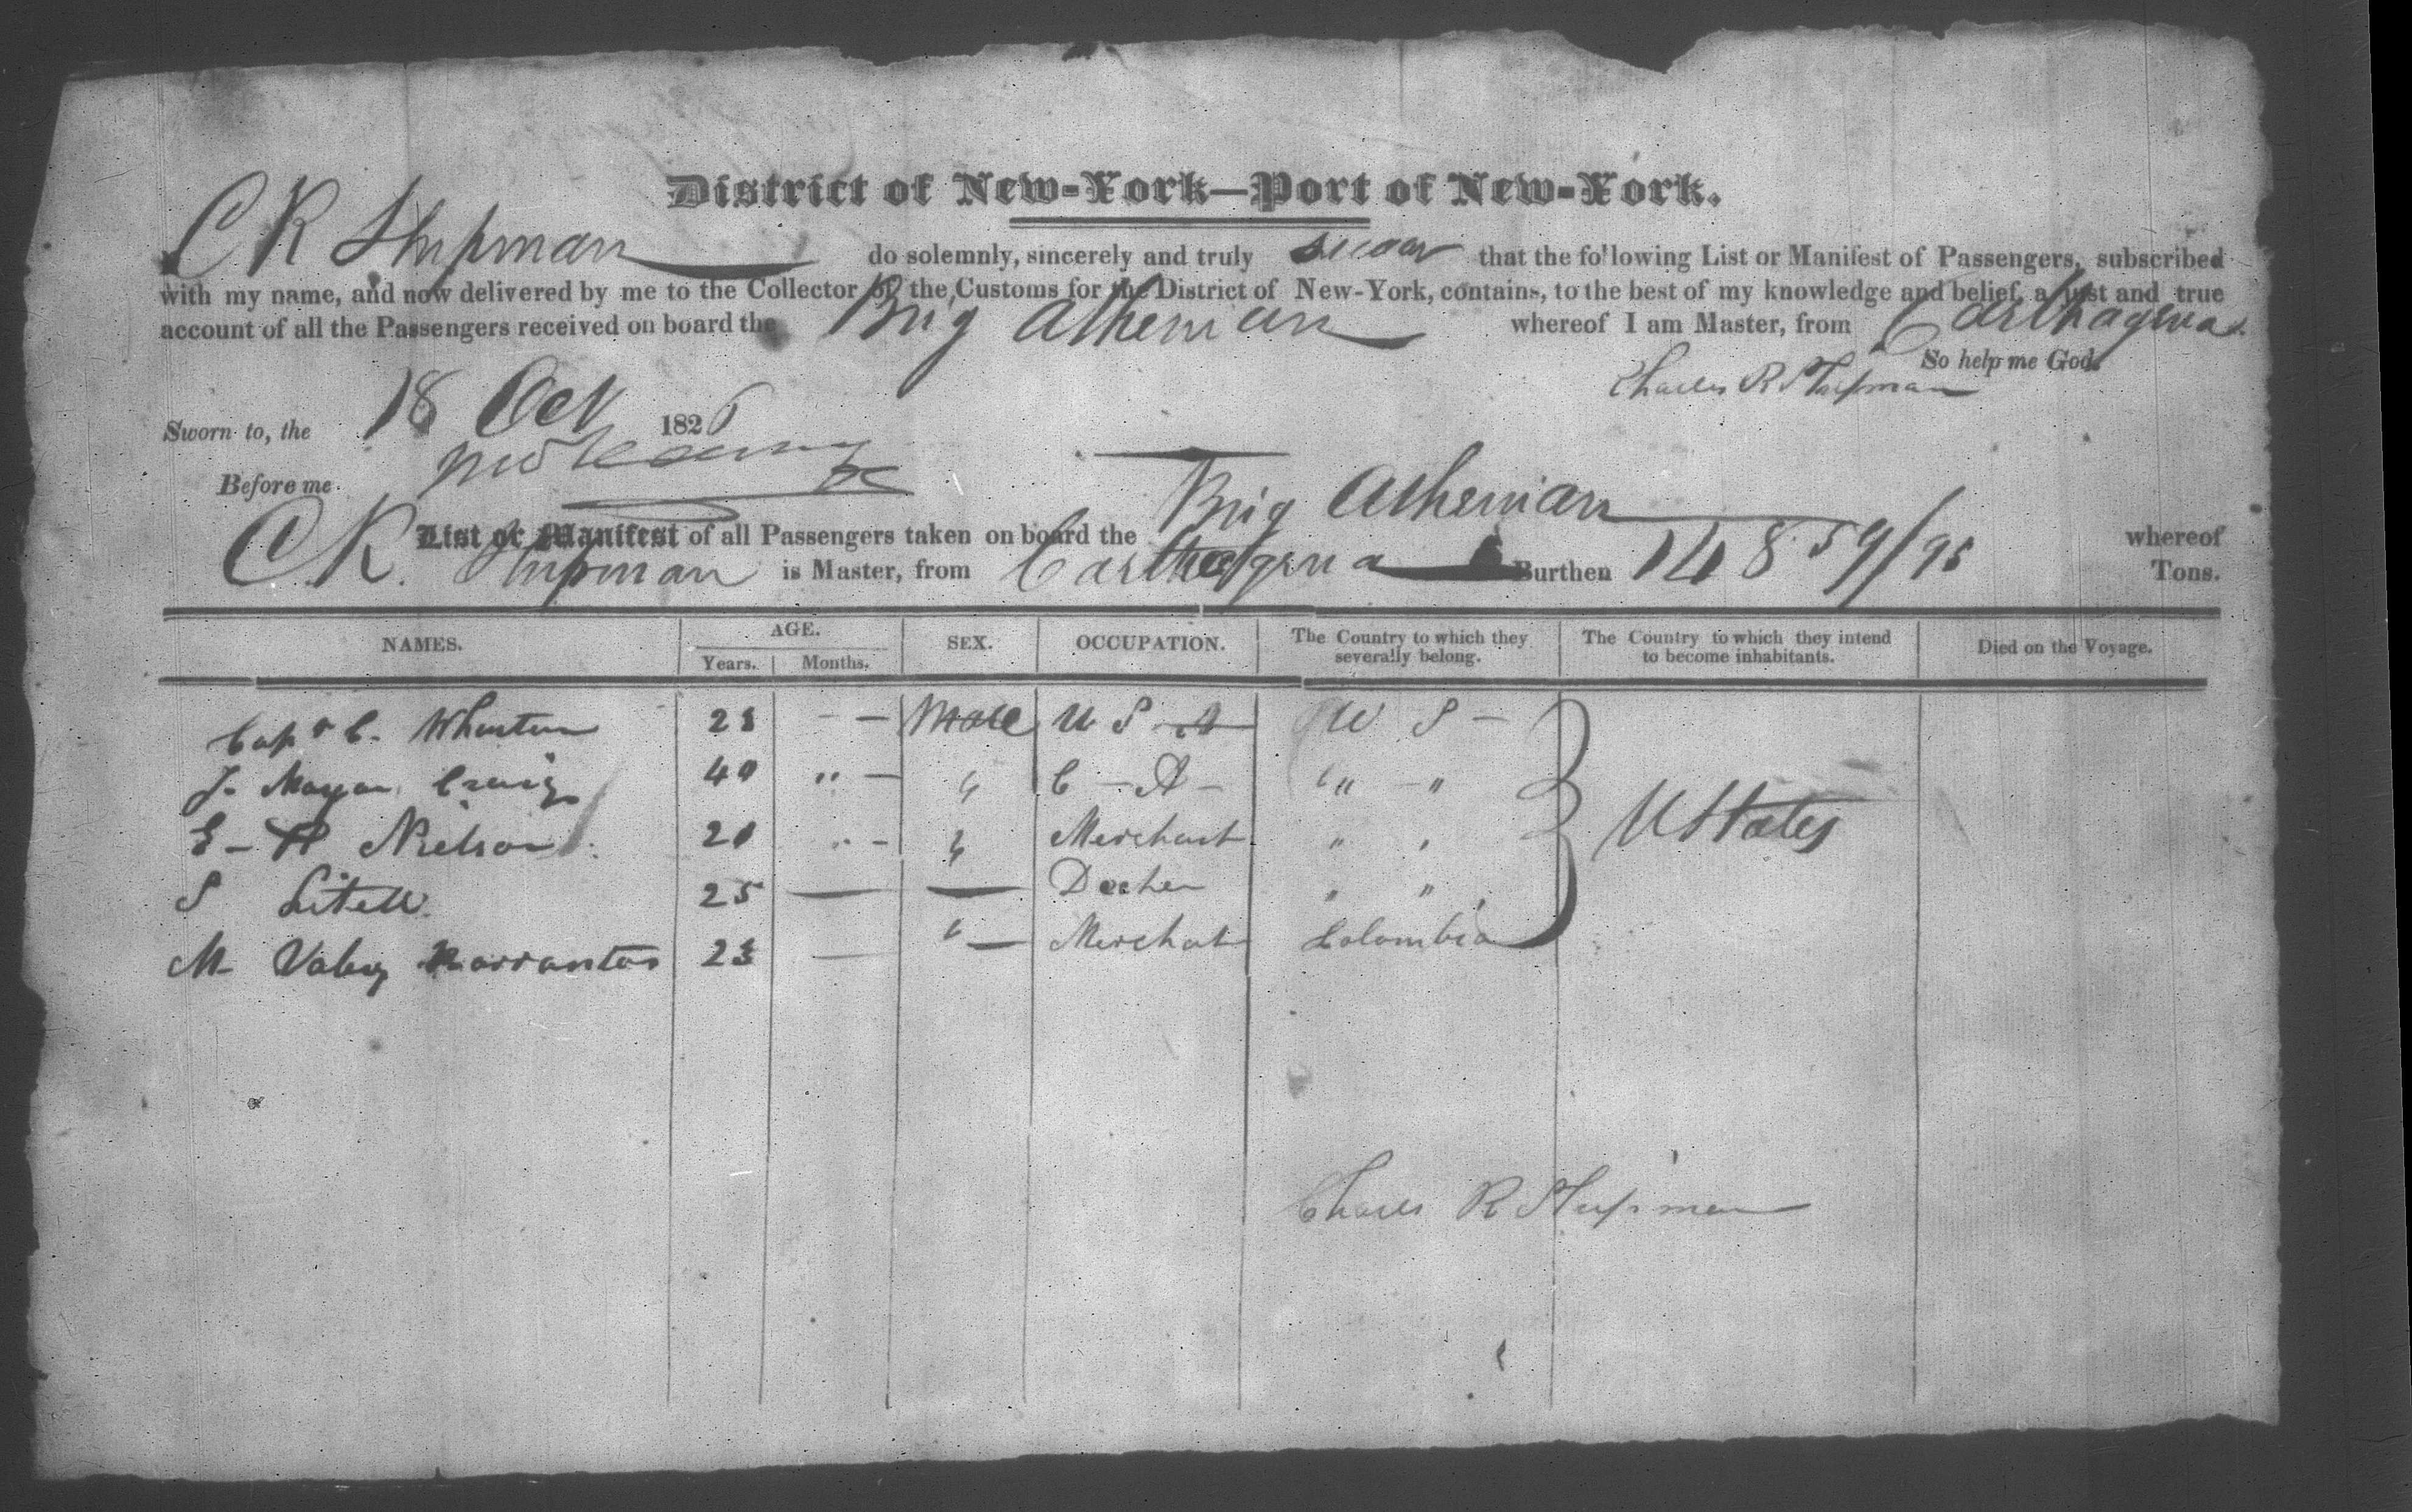 District of New-York—Port of New-York.
C R Shipman do solemnly, sincerely and truly swear that the following List or Manifest of Passengers, subscribed
with my name, and now delivered by me to the Collector of the Customs for the District of New-York, contains, to the best of my knowledge and belief, a just and true
account of all the Passengers received on board the Brig Athenian whereof I am Master, from Carthagena
So help me God.
Charles R Shipman
Sworn to, the 18 Oct 1826
Before me
List or Manifest of all Passengers taken on board the Brig Athenian whereof
C R. Shipman is Master, from Carthagena Burthen 148 59/95 Tons.
NAMES. AGE. SEX. OCCUPATION. The Country to which they severally belong. The Country to which they intend to become inhabitants. Died on the Voyage.
Years. Months.
Capt C. Wharton 23 - — Male U S A U S -
J. Craig 40 " — " C - A - " - "
E - H Nielson 20 " - " Merchant " "
S Litell 25 — — " "
M 23 — " — Merchat Colombia
U States
Charles R Shipman